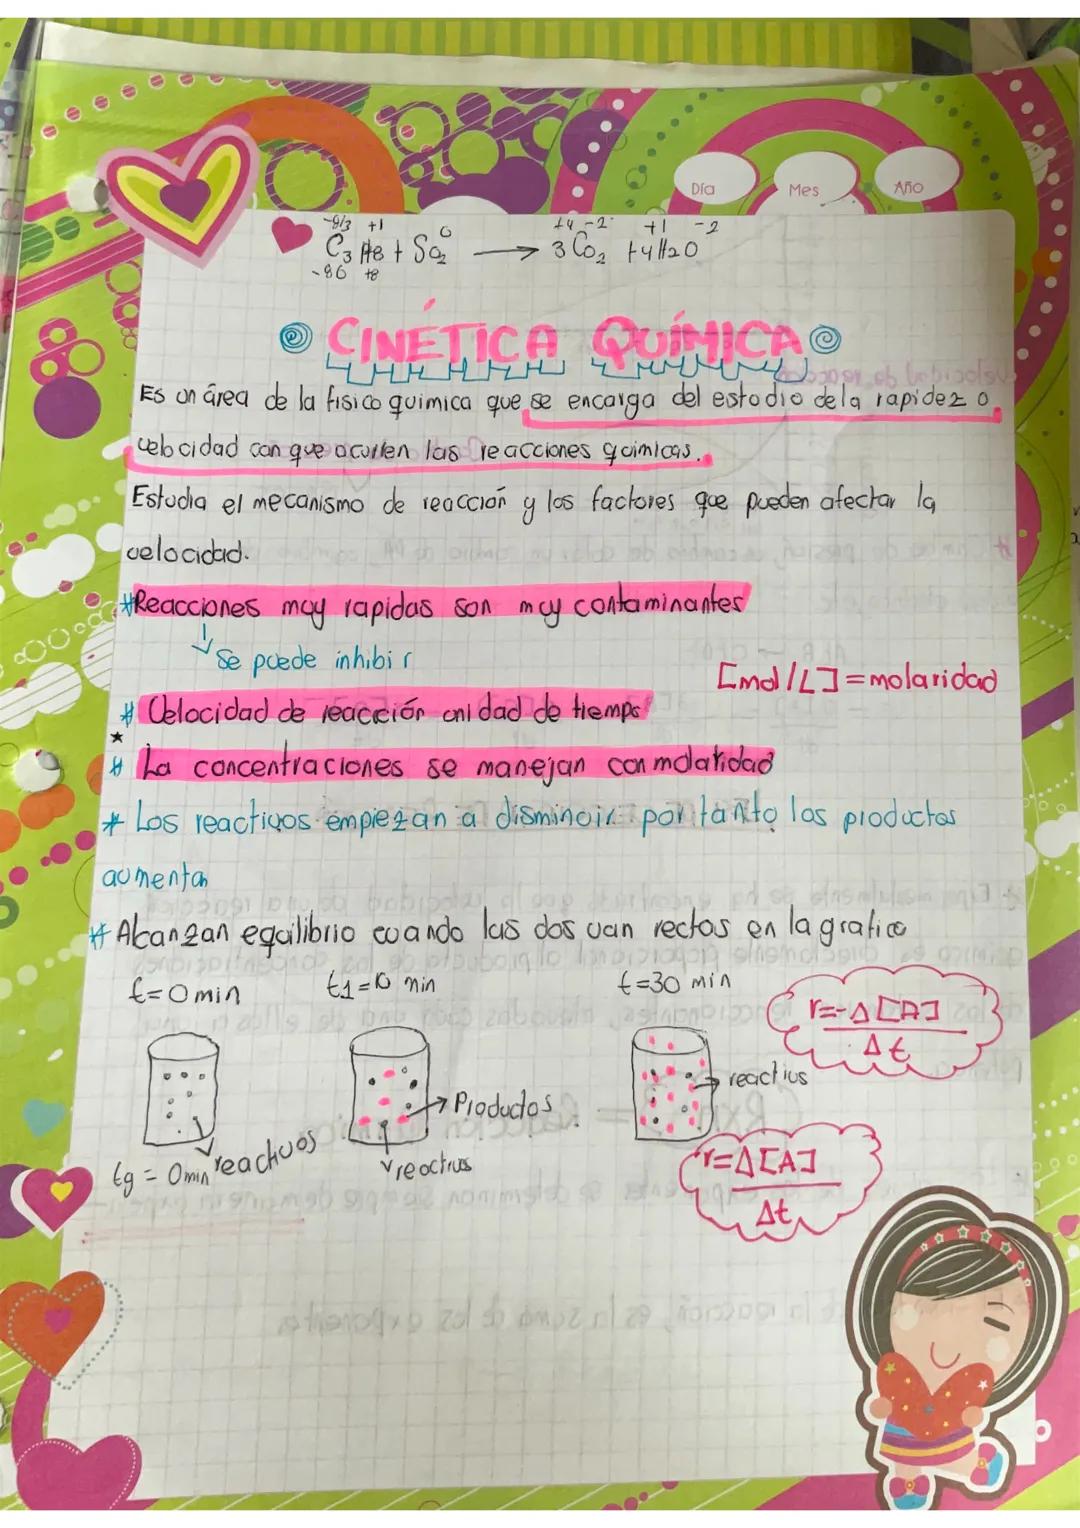 Día Mes Año
-8/3 +1 0 +4 -2 +1 -2
C3 H8 + 5O2 → 3 CO2 + 4 H2O
-8 +8
CINÉTICA QUÍMICA
Es un área de la fisico quimica que se encarga del estudio de la rapidez o
velocidad con que ocurren las reacciones quimicas.
Estudia el mecanismo de reacción y los factores que pueden afectar la
velocidad.
#Reacciones muy rapidas son muy contaminantes
↓ Se puede inhibir
[mol/L] = molaridad
# Velocidad de reacción unidad de tiempo
★
# La concentraciones se manejan con molaridad
* Los reactivos empiezan a disminuir por tanto los productos
aumentan
# Alcanzan equilibrio cuando las dos van rectas en la grafica
t=0min t1=10 min t=30 min
r=-Δ[A]
Δt
→ reactivs
→ Productos
tg = 0min reactivos
reactivs
r=Δ[A]
Δt